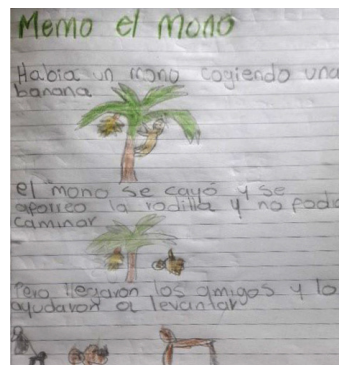 Memo el Mono
Había un mono cogiendo una
banana
el mono se cayó y se
aporreo la rodilla y no podia
caminar
Pero llegaron los amigos y lo
ayudaron a levantar